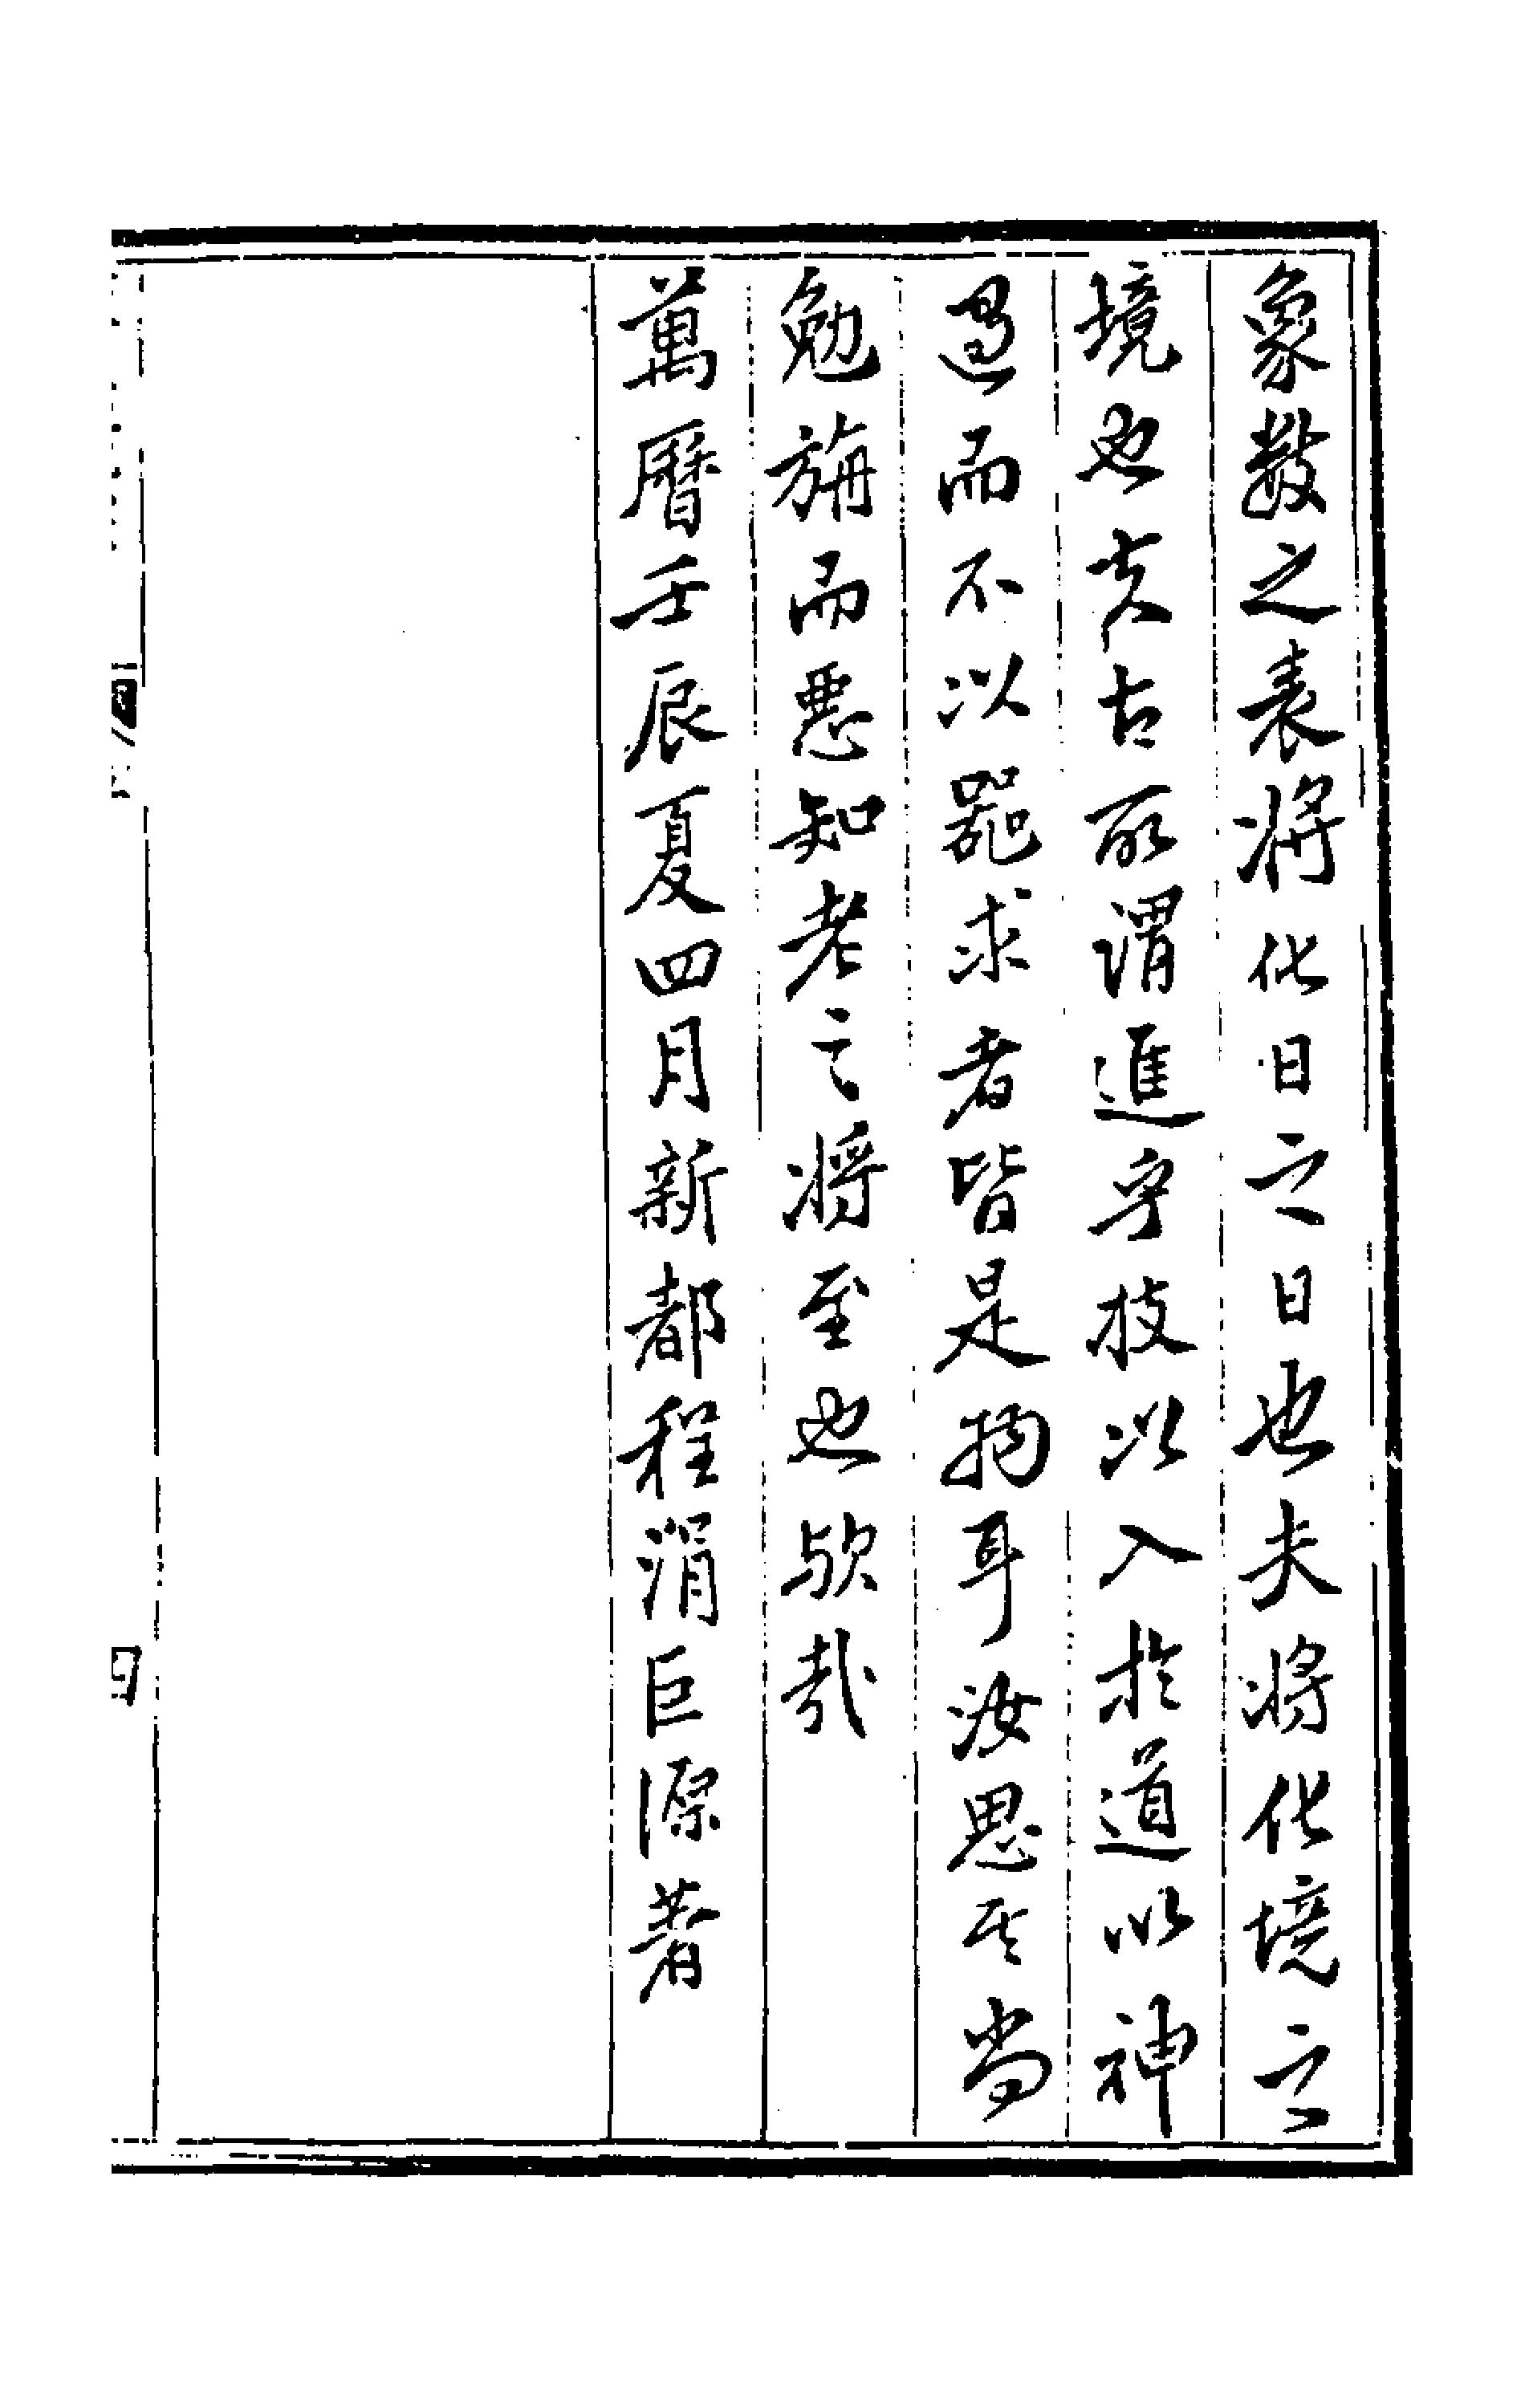 象數之表將化日之日也夫將化境之
境也古所謂進乎技以入於道以神
遇而不以噐求者皆是物耳汝思其尚
勉旃而惡知老之將至也欤哉
萬曆壬辰夏四月新都程涓巨源著
四